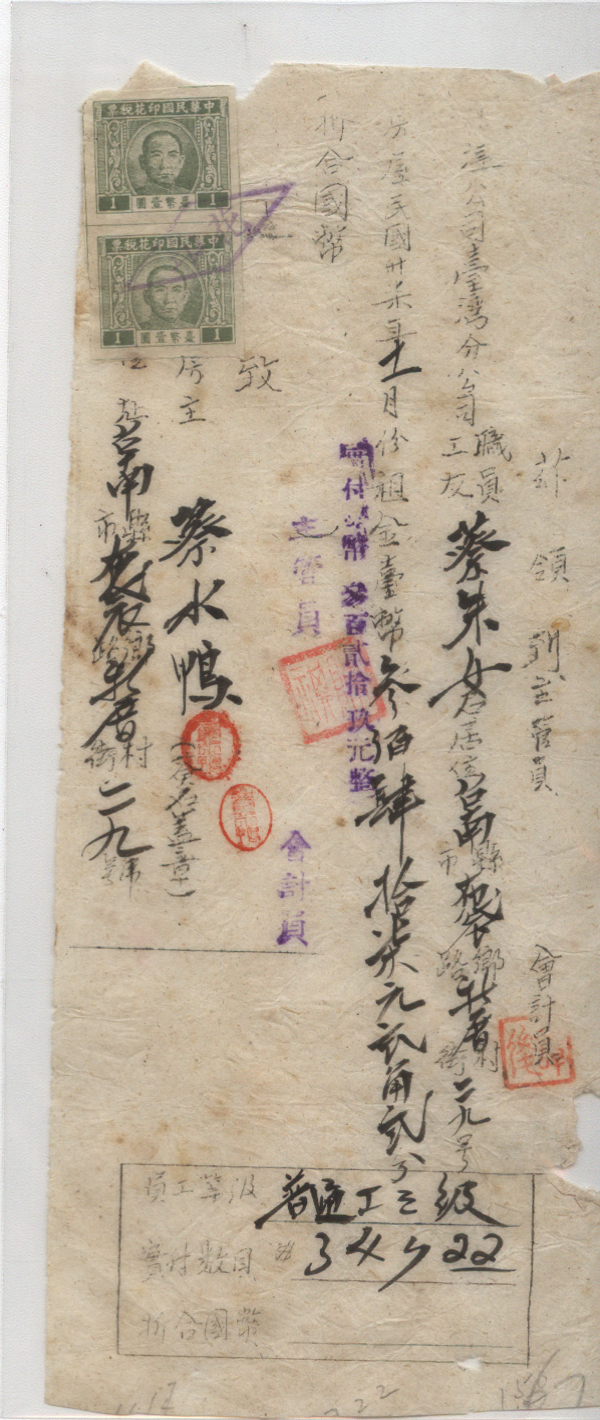 茲領到主管員 會計員
灣公司臺灣分公司職員工友蔡朱女君居住台南縣市 鄉路 村街二九号
房屋民國卅柒年十一月份租金臺幣叁佰肆拾柒元貳角貳分
實付臺幣 叁百貳拾玖元整
折合國幣
主管員 會計員
致
房主 蔡水鴨 (簽名盖章)
台南縣市 鄉路 村街二九號
中華民國印花稅票
1 臺幣壹圓 1
中華民國印花稅票
1 臺幣壹圓 1
員工等級 普通工三級
實付數目
折合國幣